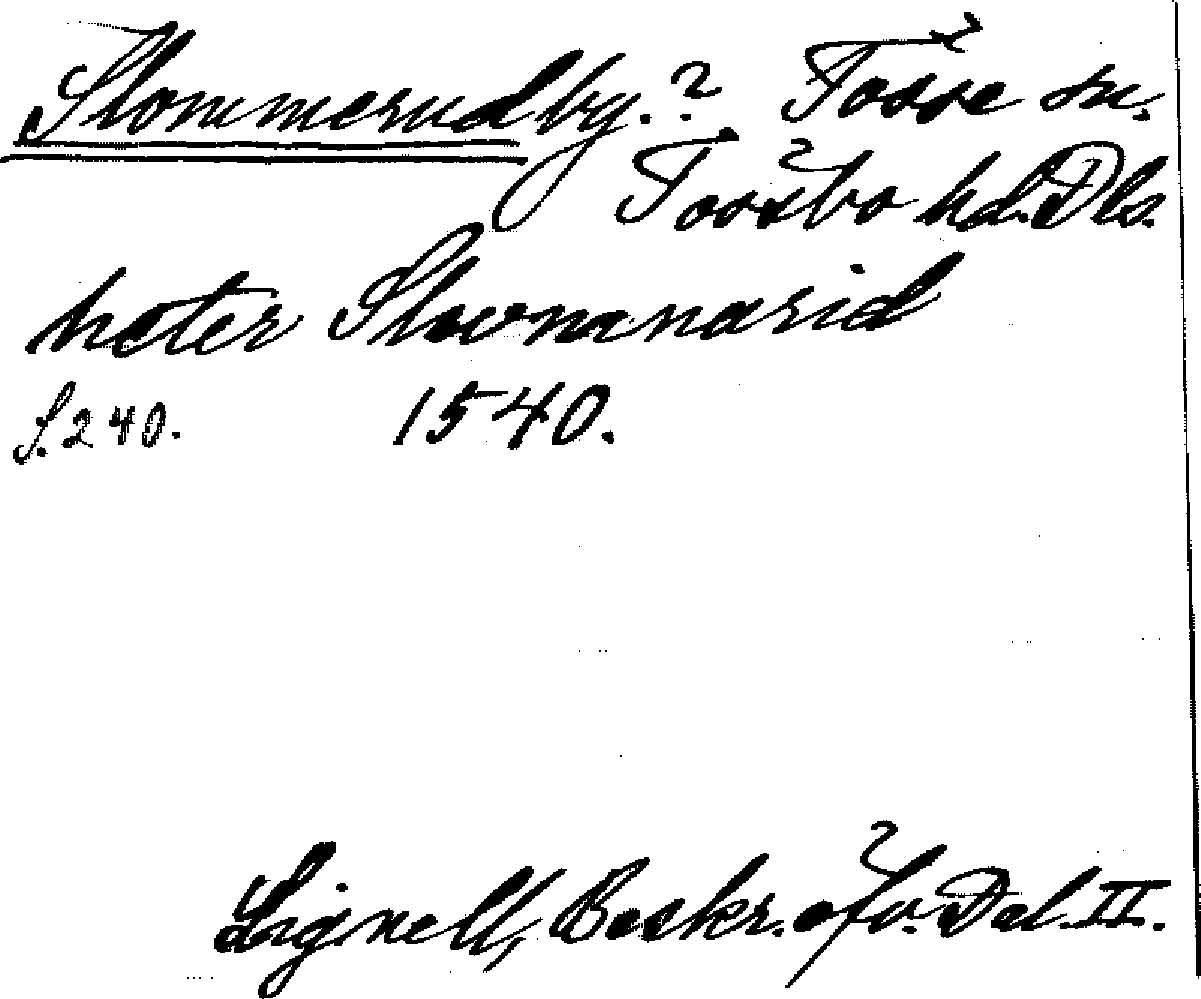 Stommerud by.? Tösse sn.
Tössbo hd. Dls.
heter Stommanarid
S. 240. 1540.
Lignell, Beskr. öfv. Dal. II.